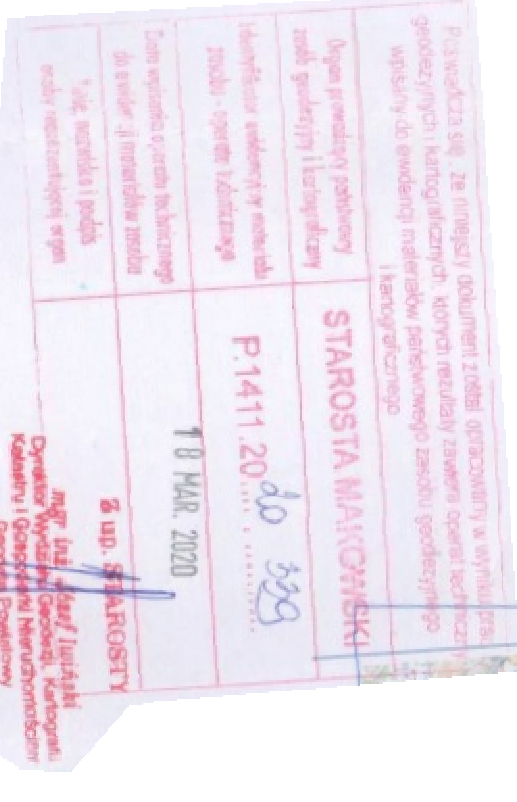 Poświadcza się, że niniejszy dokument został opracowany w wyniku prac
geodezyjnych i kartograficznych, których rezultaty zawiera operat techniczny
wpisany do ewidencji materiałów państwowego zasobu geodezyjnego
i kartograficznego
Organ prowadzący państwowy
zasób geodezyjny i kartograficzny
STAROSTA MAKOWSKI
Identyfikator ewidencyjny materiału
zasobu - operatu technicznego
P.1411.2020 339
Data wpisania operatu technicznego
do ewidencji materiałów zasobu
18 MAR. 2020
Imię, nazwisko i podpis
osoby reprezentującej organ
z up. STAROSTY
mgr inż.
Dyrektor Wydziału Geodezji, Kartografii
Katastru i Gospodarki Nieruchomościami